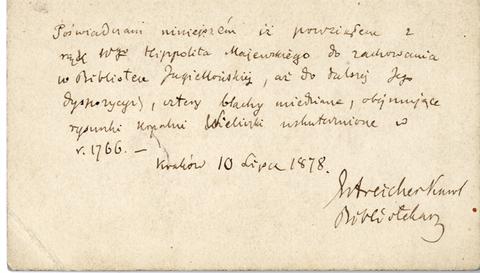 Poświadczam niniejszém iż powziąłem z
rąk WJP Hippolita Majewskiego do zachowania
w Bibliotece Jagiellońskiej, aż do dalszej Jego
dyspozycyi, cztery blachy miedziane, obejmujące
rysunki kopalni Wieliczki uskutecznione w
r. 1766. —
Kraków 10 Lipca 1878.
Estreicher Karol
Bibliotekarz